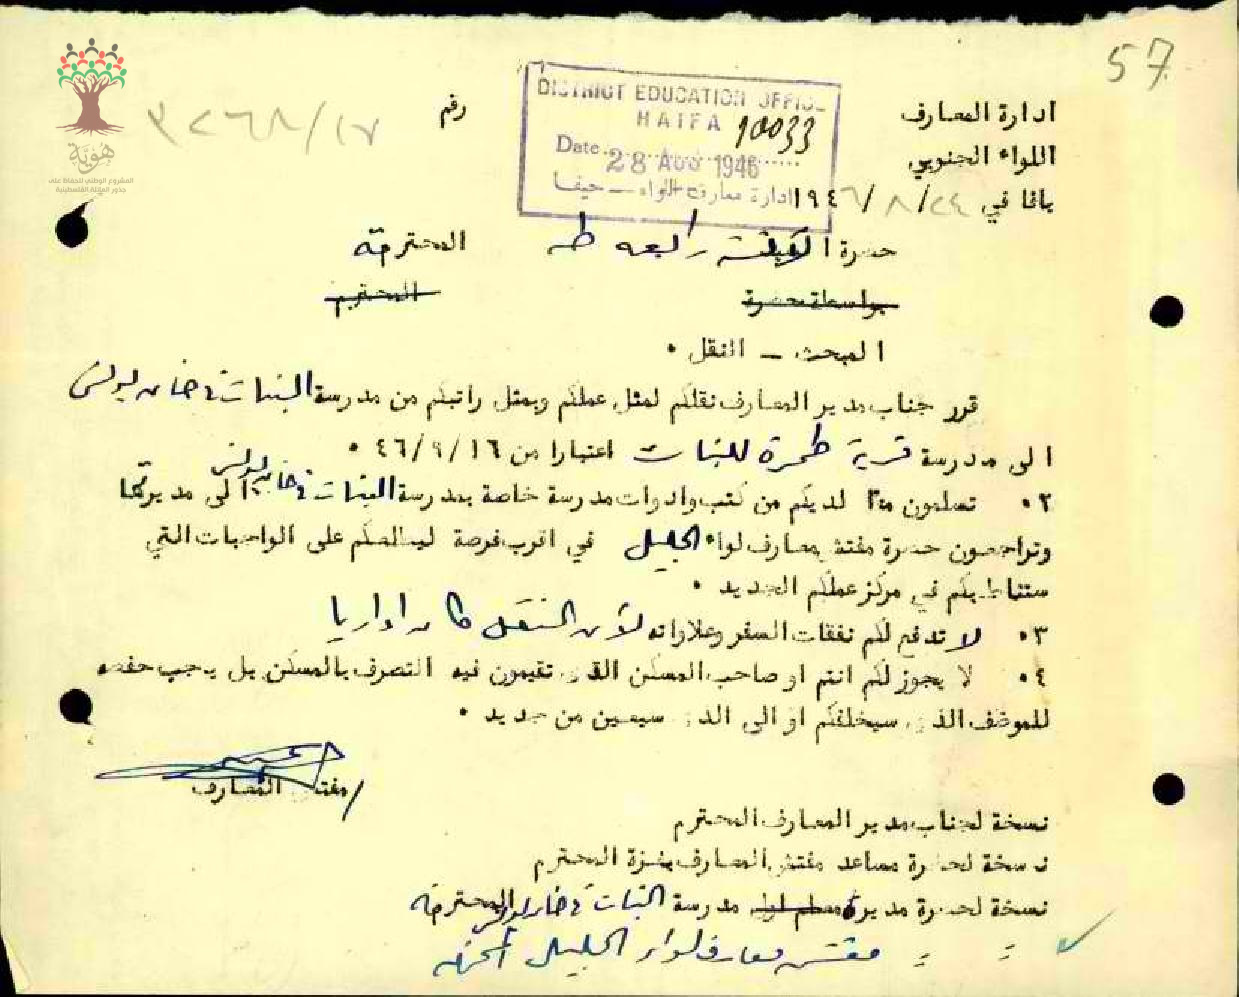 57
ادارة المعارف
رقم ٣٢٦٨/١٧
اللواء الجنوبي
يافا في ٢٤/٨/١٩٤٦
DISTRICT EDUCATION OFFICE
HAIFA
10033
Date 28 AUG 1946
ادارة معارف اللواء - حيفا
هوية
المشروع الوطني للحفاظ على
جذور العائلة الفلسطينية
حضرة رابعه طه المحترمة
بواسطة حضرة المحترم
المبحث - النقل .
قرر جناب مدير المعارف نقلكم لمثل عملكم وبمثل راتبكم من مدرسة البنات في خان يونس
الى مدرسة قرية طمرة للبنات اعتبارا من ٤٦/٩/١٦ .
٢. تسلمون ما لديكم من كتب وادوات مدرسة خاصة بمدرسة البنات في خان يونس الى مديرتها
وتراجعون حضرة مفتش معارف لواء الجليل في اقرب فرصة ليطلعكم على الواجبات التي
ستناط بكم في مركز عملكم الجديد .
٣. لا تدفع لكم نفقات السفر وعلاواته لأن النقل كان اداريا
٤. لا يجوز لكم انتم او صاحب المسكن الذي تقيمون فيه التصرف بالمسكن بل يجب حفظه
للموظف الذي سيخلفكم او الى الذي سيعين من جديد .
/مفتش المعارف
نسخة لجناب مدير المعارف المحترم
نسخة لحضرة مساعد مفتش المعارف بغزة المحترم
نسخة لحضرة مديرة مدرسة البنات في خان يونس المحترمة
= = مفتش معارف لواء الجليل المحترم